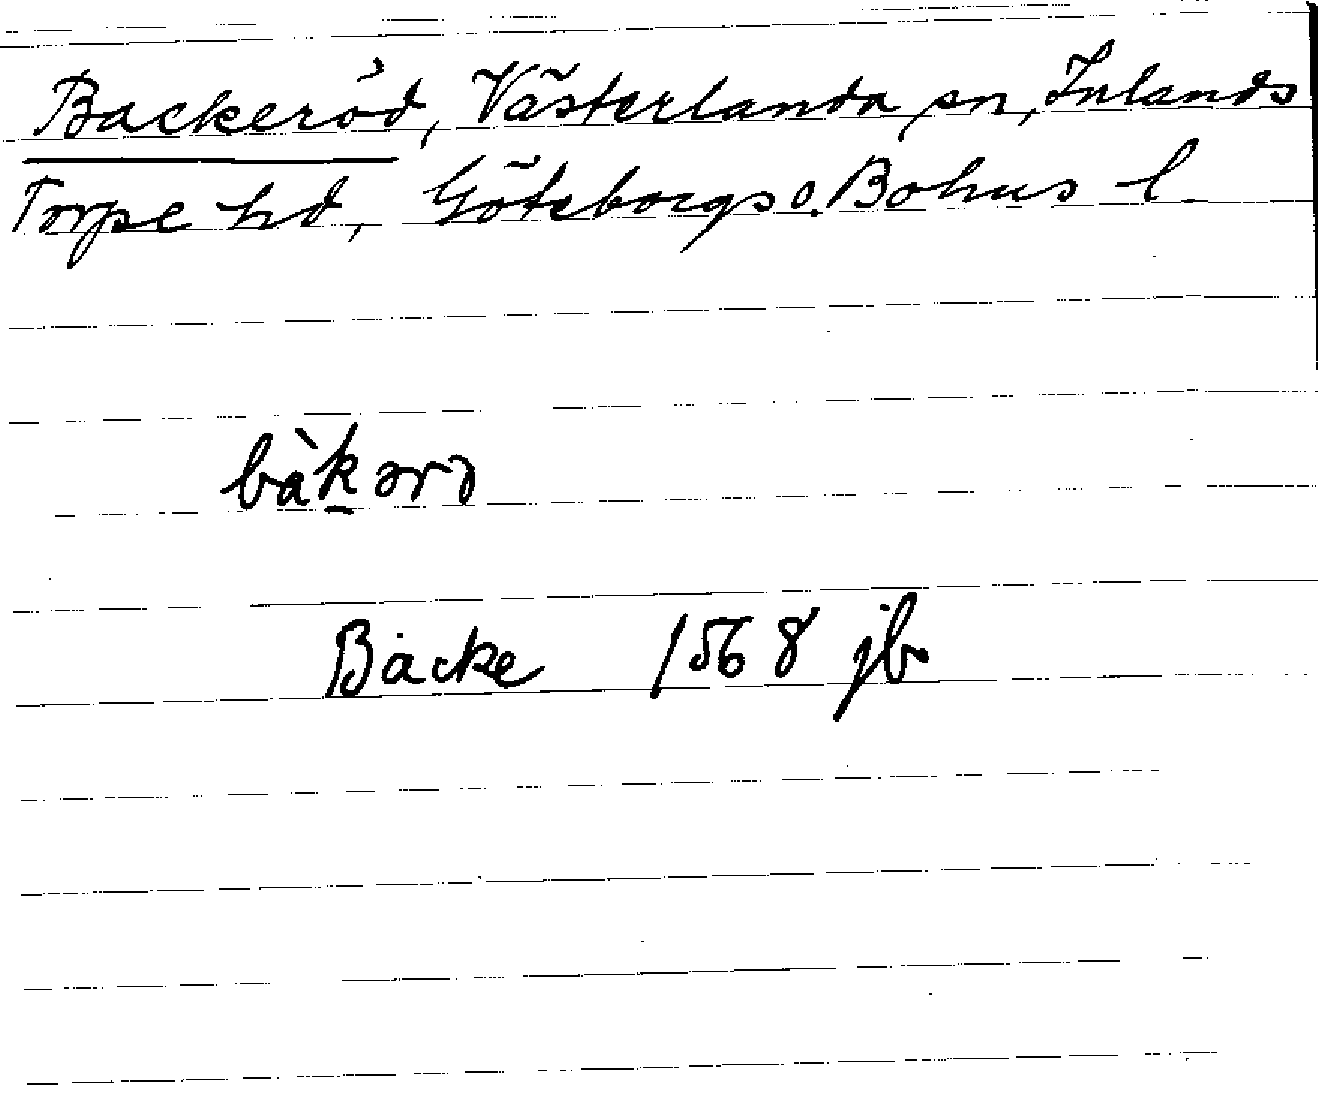 Backeröd, Västerlanda sn, Inlands
Torpe hd, Göteborgs o. Bohus l.
bàkərə
Backe 1568 jb